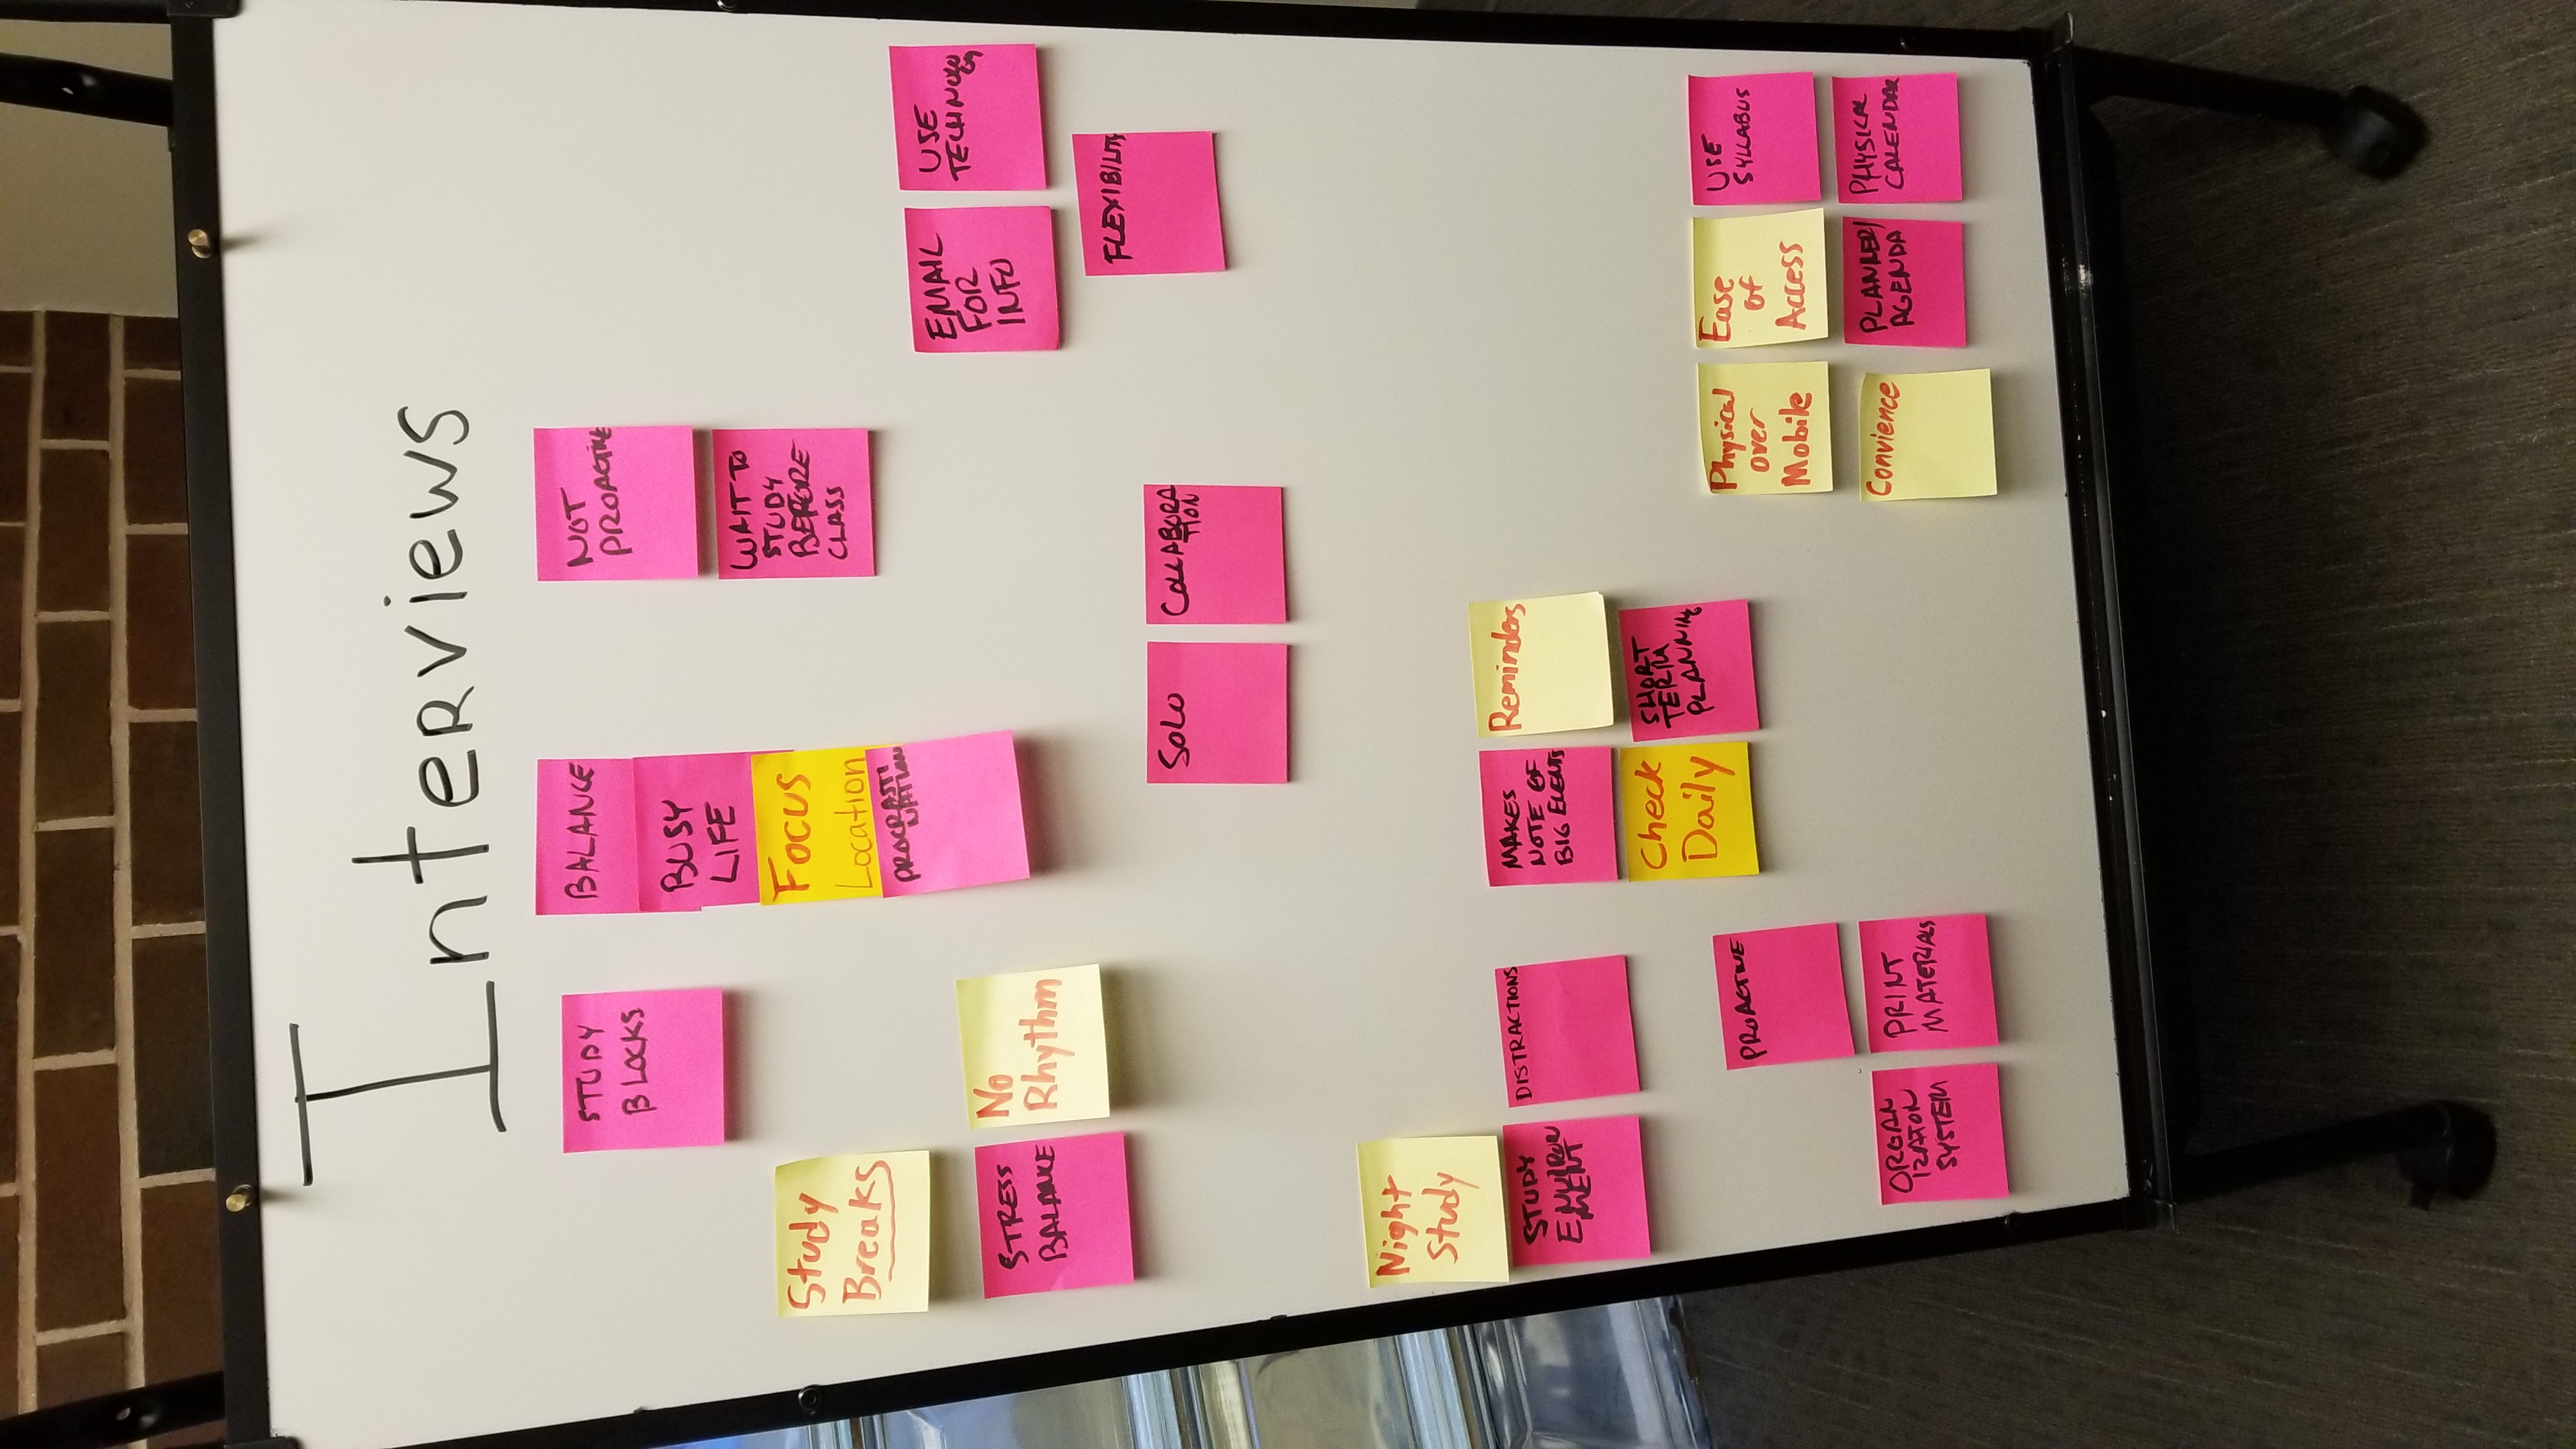 Interviews
STUDY
BLOCKS
BALANCE
BUSY
LIFE
Focus
Location
PROCRASTI
NATION
NOT
PROACTIVE
WAIT TO
STUDY
BEFORE
CLASS
Study
Breaks
STRESS
BALANCE
No
Rhythm
EMAIL
FOR
INFO
USE
TECHNOLO
gy
FLEXIBILITY
SOLO
COLLABORA
TION
Night
Study
STUDY
ENVIRON
MENT
DISTRACTIONS
MAKES
NOTE OF
BIG EVENTS
Reminders
Check
Daily
SHORT
TERM
PLANNING
PROACTIVE
ORGAN
IZATON
SYSTEM
PRINT
MATERIALS
Physical
over
Mobile
Ease
of
Access
USE
SYLLABUS
Convience
PLANNER/
AGENDA
PHYSICAL
CALENDAR